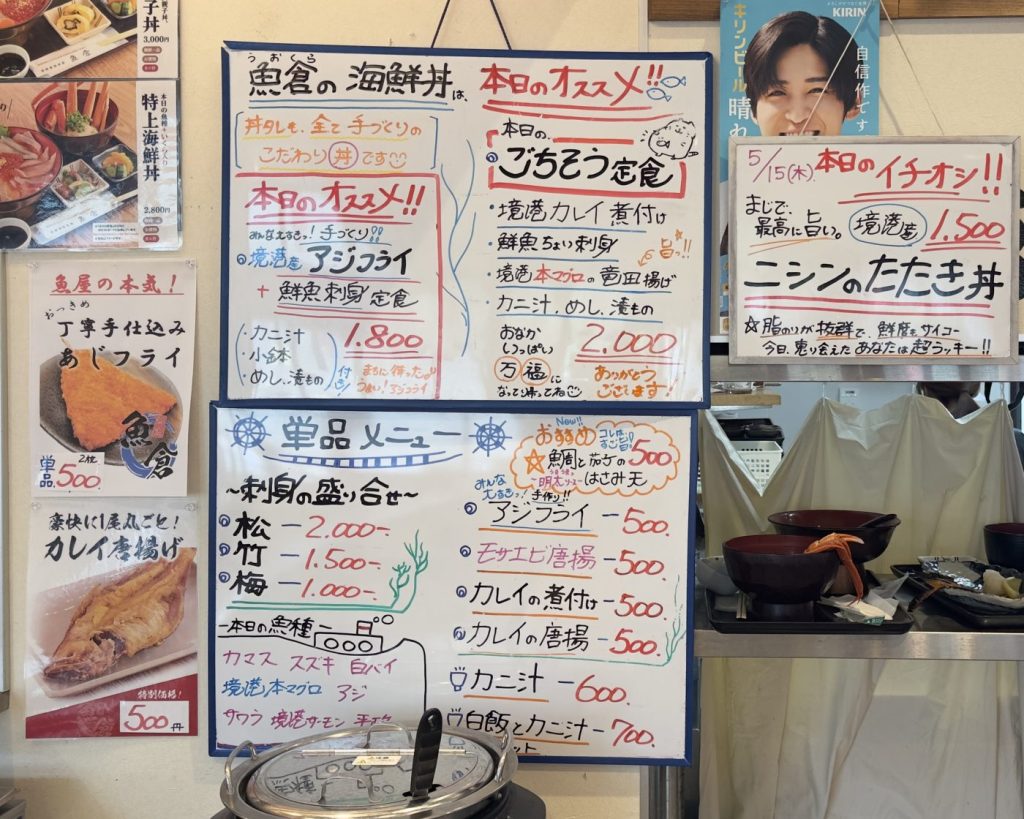 子丼
3,000円
本日の魚種+いくら入り
特上海鮮丼
2,800円
魚屋の本気!
丁寧手仕込み
あじフライ
魚倉
2枚
単品500円
豪快に1尾丸ごと!
カレイ唐揚げ
特別価格!
500円
うおくら
魚倉の海鮮丼は、
丼タレも、全て手づくりの
こだわり丼です
本日のオススメ!!
みんな大すきっ!手づくり!!
境港産アジフライ
+鮮魚刺身定食
・カニ汁
・小鉢
・めし、漬もの
付き
1.800
うまい!アジフライ
本日のオススメ!!
本日の、
ごちそう定食
・境港カレイ煮付け
・鮮魚ちょい刺身
旨っ!!
・境港本マグロの竜田揚げ
・カニ汁、めし、漬もの
おなか
いっぱい
万福に
なって帰ってね
2.000
ありがとう
ございます!
単品メニュー
~刺身の盛り合せ~
松-2.000-.
竹-1.500-.
梅-1.000-.
-本日の魚種-
カマス スズキ 白バイ
境港本マグロ アジ
サワラ 境港サーモン
New!!
おすすめ
コレは
すご旨!
500
鯛と茄子の
明太ソース
はさみ天
みんな
大すきっ!
手作り!!
アジフライ-500.
モサエビ唐揚-500.
カレイの煮付け-500.
カレイの唐揚-500.
カニ汁-600.
白飯とカニ汁-700.
ット
KIRIN
キリンビール
晴れ
自信作です
5/15(木).本日のイチオシ!!
まじで、
最高に旨い。
境港産
1.500
ニシンのたたき丼
☆脂のりが抜群で、鮮度もサイコー
今日、巡り会えたあなたは超ラッキー!!